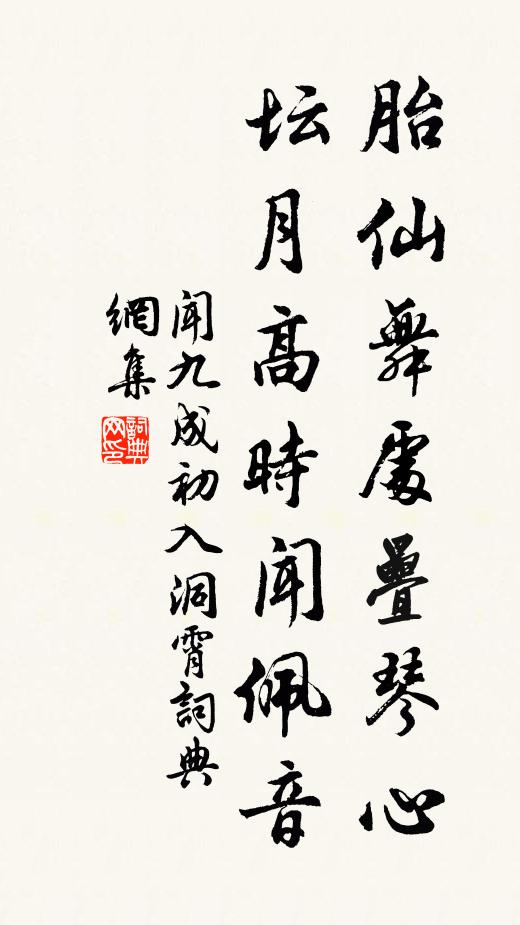 胎仙舞處疊琴心
坛月高時闻佩音
闻九成初入洞霄詞典
網集
詞典网印